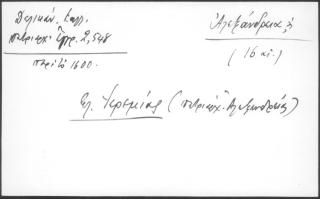 Δελικάν. Καλλ.
πατριαρχ. Ἔγγρ. 2, 548
περὶ τὸ 1600.
Ἀλεξάνδρεια
(16 αἰ.)
Ἱερεμίας (πατριάρχ. Ἀλεξανδρείας)